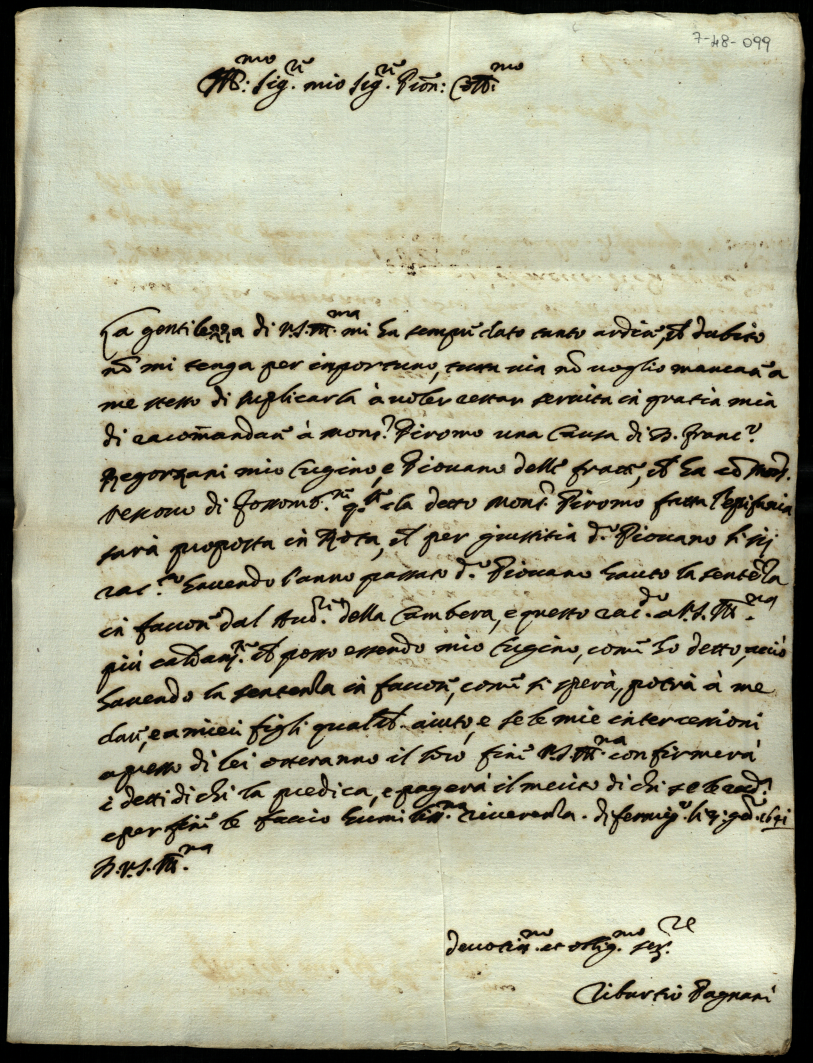 7-48-099
Ill:mo Sig.re mio Sig.re P̃ron: Col:mo
La gentilezza di V.S. Ill.ma mi ha sempre dato tanto ardire, che dubito
nõ mi tenga per inportuno, tutta via nõ voglio mancare a
me stesso di suplicarla à voler restar servita in gratia mia
di racõmandare à Mons.r Piromo una causa di D. Franc.o
mio Cugino, e Piovano delle fratte, che ha cõ Mons.
vescovo di Fossomb.ne q.le da detto Mons.r Piromo fatta l'epifania
sarà proposta in Rota, che per giustitia d.o Piovano li sij
rac.to havendo l'anno passato d.o Piovano hauto la sentẽza
in favore dal Aud.re della Cambera, e questo rac.do a V.S. Ill.ma
più che posso essendo mio Cugino, come ho detto, acciò
havendo la sentenza in favore, come si spera, potrà à me
dare, e a miei figli qualche aiuto, e se le mie intercessioni
apresso di lei otteranno il suo fine V.S. Ill.ma confirmerà
i detti di chi la predica, e pagerà il merito di chi se le racd.a
e per fine le faccio humiliss.ma riverenza. di
D.V.S. Ill.ma
devotiss.mo et oblig.mo ser.re
Tiburtio Pagnani